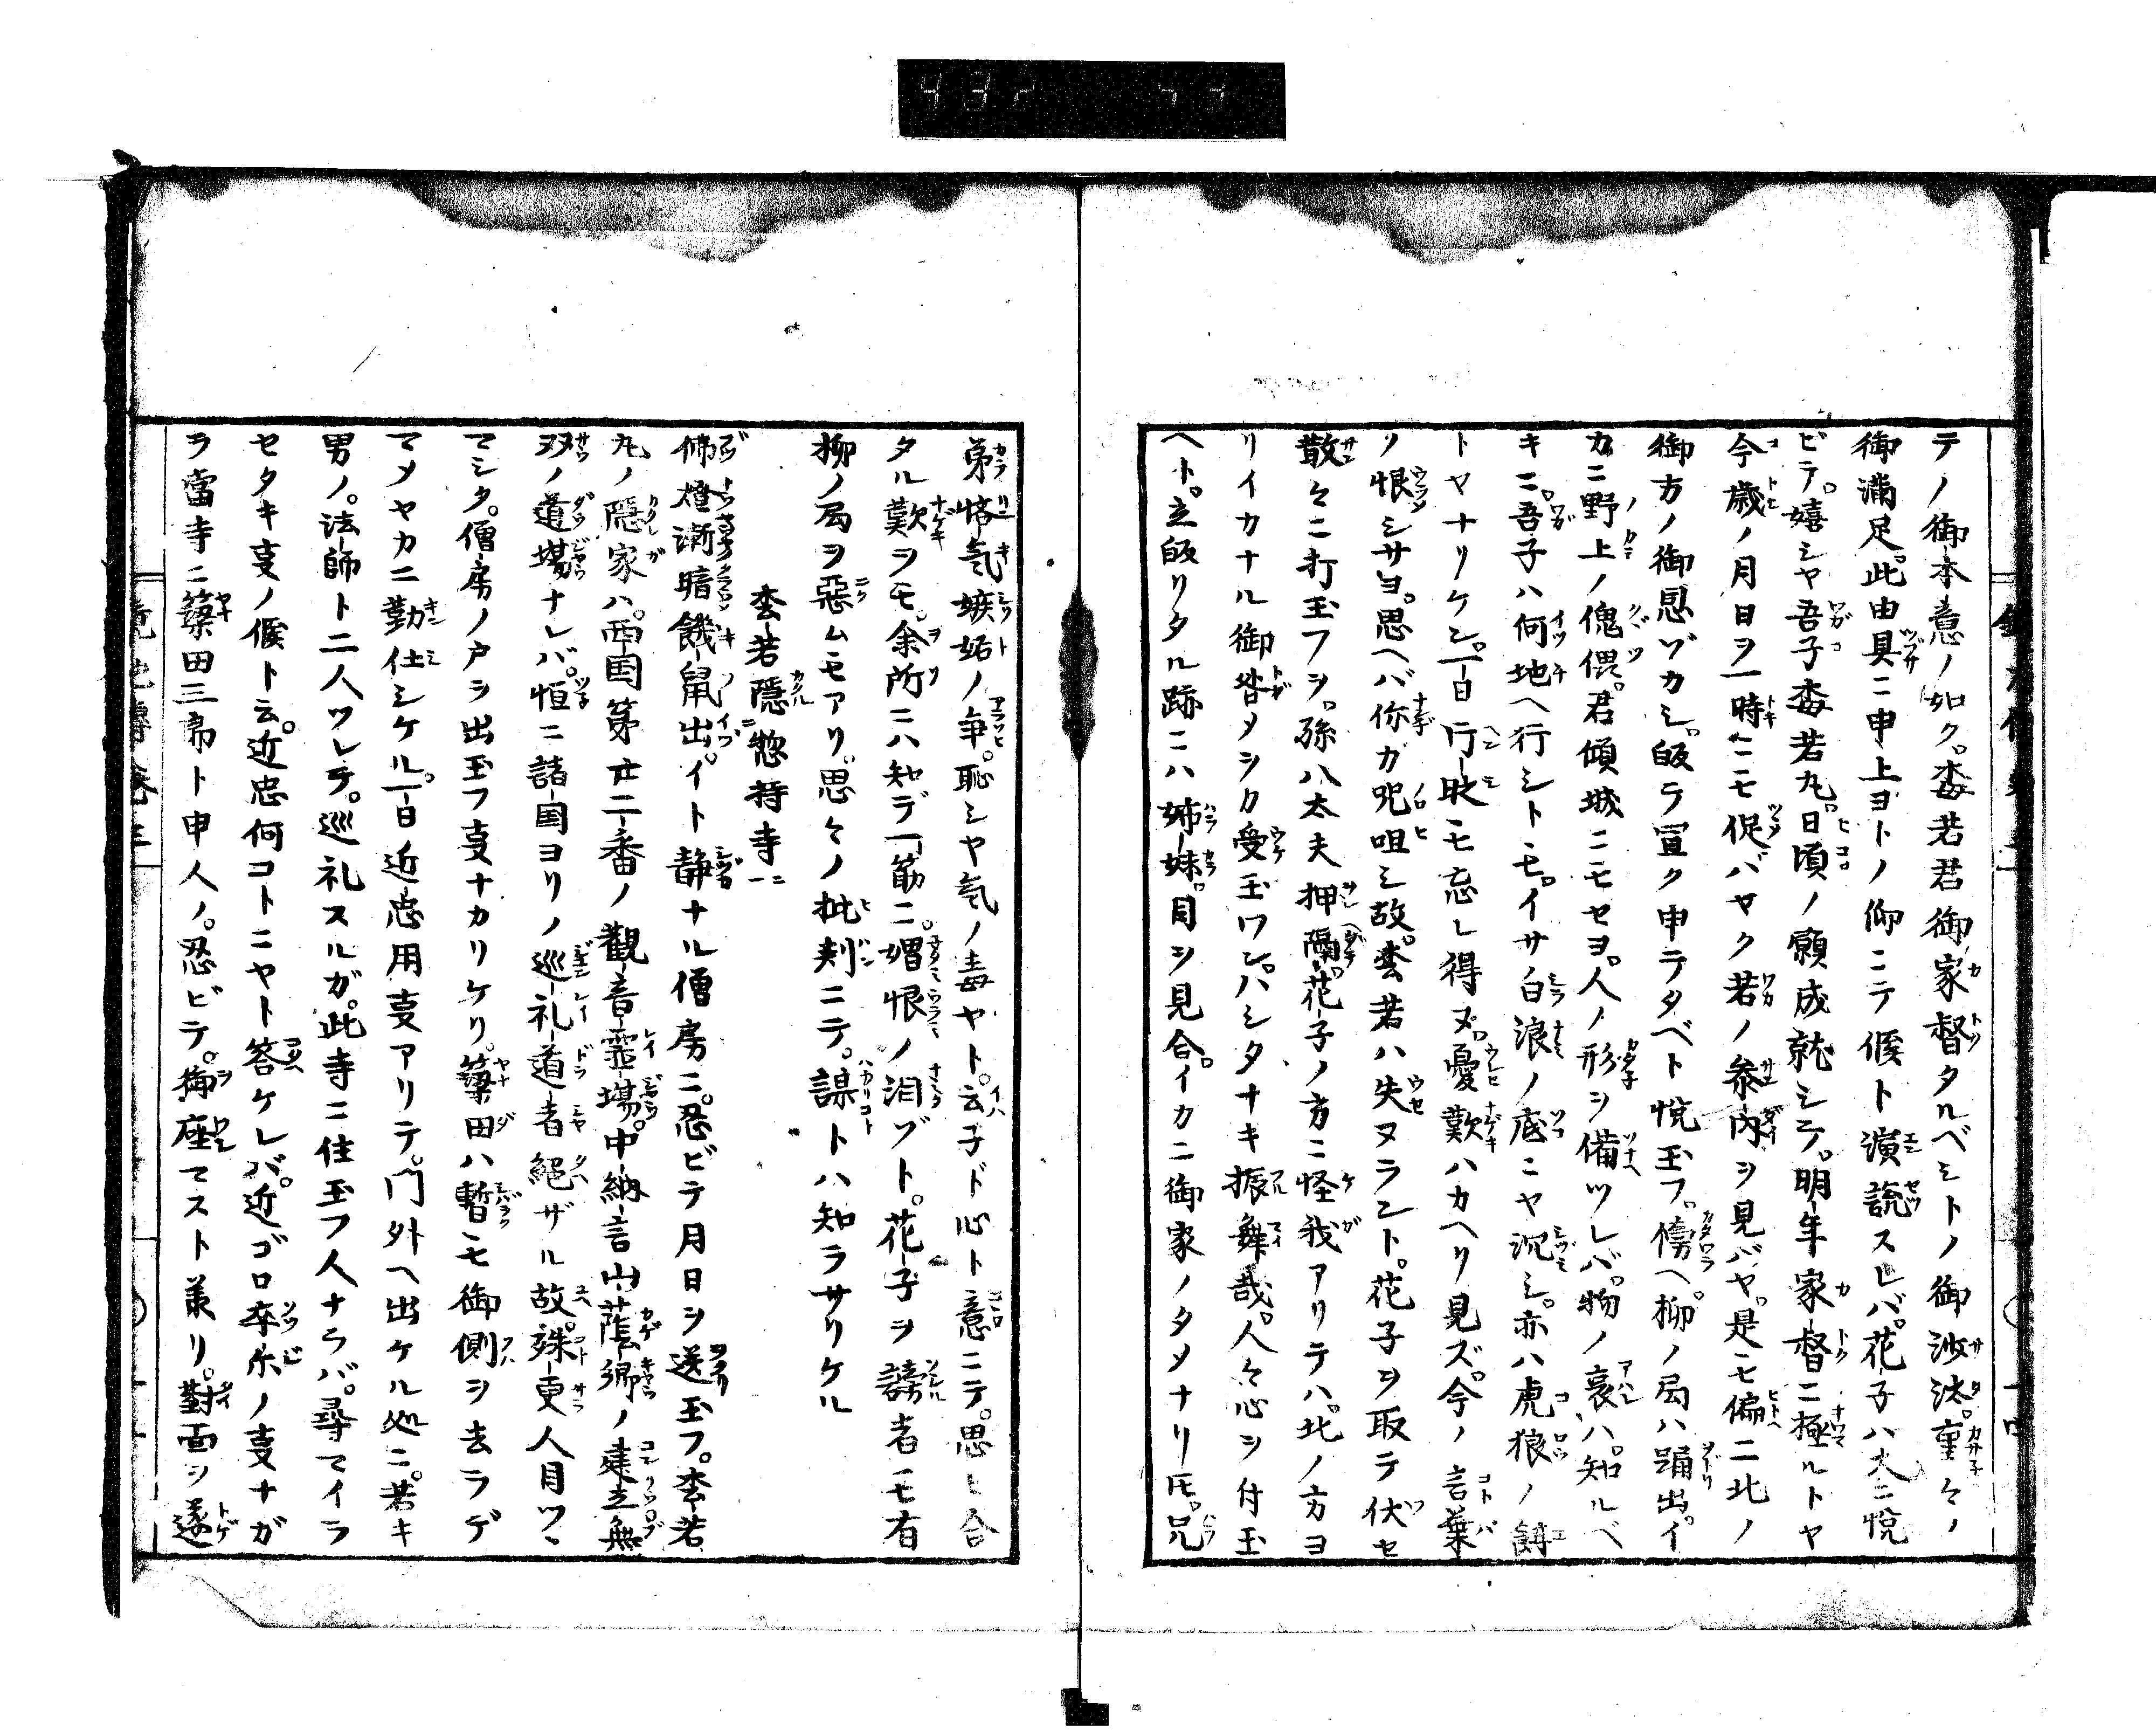 テノ御本意ノ如ク。梅若君御家督タルベシトノ御沙汰。重々ノ
御満足。此由具ニ申上ヨトノ仰ニテ候ト演説スレバ。花子ハ大ニ悦
ビテ。嬉シヤ吾子梅若丸。日頃ノ願成就シテ。明年家督ニ極ルトヤ
今歳ノ月日ヲ一時ニモ促バヤク若ノ参内ヲ見バヤ。是モ偏ニ北ノ
御方ノ御恩ヅカシ。皈ラ宣ク申テタベト悦玉フ。傍ヘ。柳ノ局ハ踊出。イ
カニ野上ノ傀儡。君傾城ニモセヨ。人ノ形ヲ備ツレバ。物ノ哀ハ知ルベ
キニ。吾子ハ何地ヘ行シトモ。イサ白浪ノ底ニヤ沉シ。亦ハ虎狼ノ餌
トヤナリケン。一日片時モ忘レ得ヌ。憂歎ハカヘリ見ズ。今ノ言葉
ノ恨シサヨ。思ヘバ你カ呪咀シ故。松若ハ失ヌラント。花子ヲ取テ伏セ
散々ニ打玉フヲ。孫八太夫押隔。花子ノ方ニ怪我アリテハ。北ノ方ヨ
リイカナル御咎メヲカ受玉ワン。ハシタナキ振舞哉。人々心ヲ付玉
ヘト。立皈リタル跡ニハ姉妹。目ヲ見合。イカニ御家ノタメナリ𪜈。兄
弟悋気嫉妬ノ争。恥シヤ気ノ毒ヤト。云子ド心ト意ニテ。思ヒ合
タル歎ヲモ。余所ニハ知デ一筋ニ。媢恨ノ泪ゾト。花子ヲ謗者モ有
柳ノ局ヲ惡ムモアリ。思々ノ批判ニテ。謀トハ知ラサリケル
松若隠惣持寺
佛燈漸暗饑鼠出。イト静ナル僧房ニ。忍ビテ月日ヲ送玉フ。松若
丸ノ隠家ハ。西国第廿二番ノ觀音霊場。中納言山蔭卿ノ建立無
双ノ道場ナレバ。恒ニ諸国ヨリノ巡礼道者絕ザル故。殊更人目ツヽ
マシタ。僧房ノ戸ヲ出玉フ叓ナカリケリ。簗田ハ暫モ御側ヲ去ラデ
マメヤカニ勤仕シケル。一日近忠用叓アリテ。門外ヘ出ケル処ニ。若キ
男ノ。法師ト二人ツレテ。巡礼スルガ。此寺ニ住玉フ人ナラバ。尋マイラ
セタキ叓ノ候ト云。近忠何コトニヤト答ケレバ。近ゴロ卒尓ノ叓ナガ
ラ當寺ニ簗田三郎ト申人ノ。忍ビテ。御座マスト羕リ。對面ヲ遂